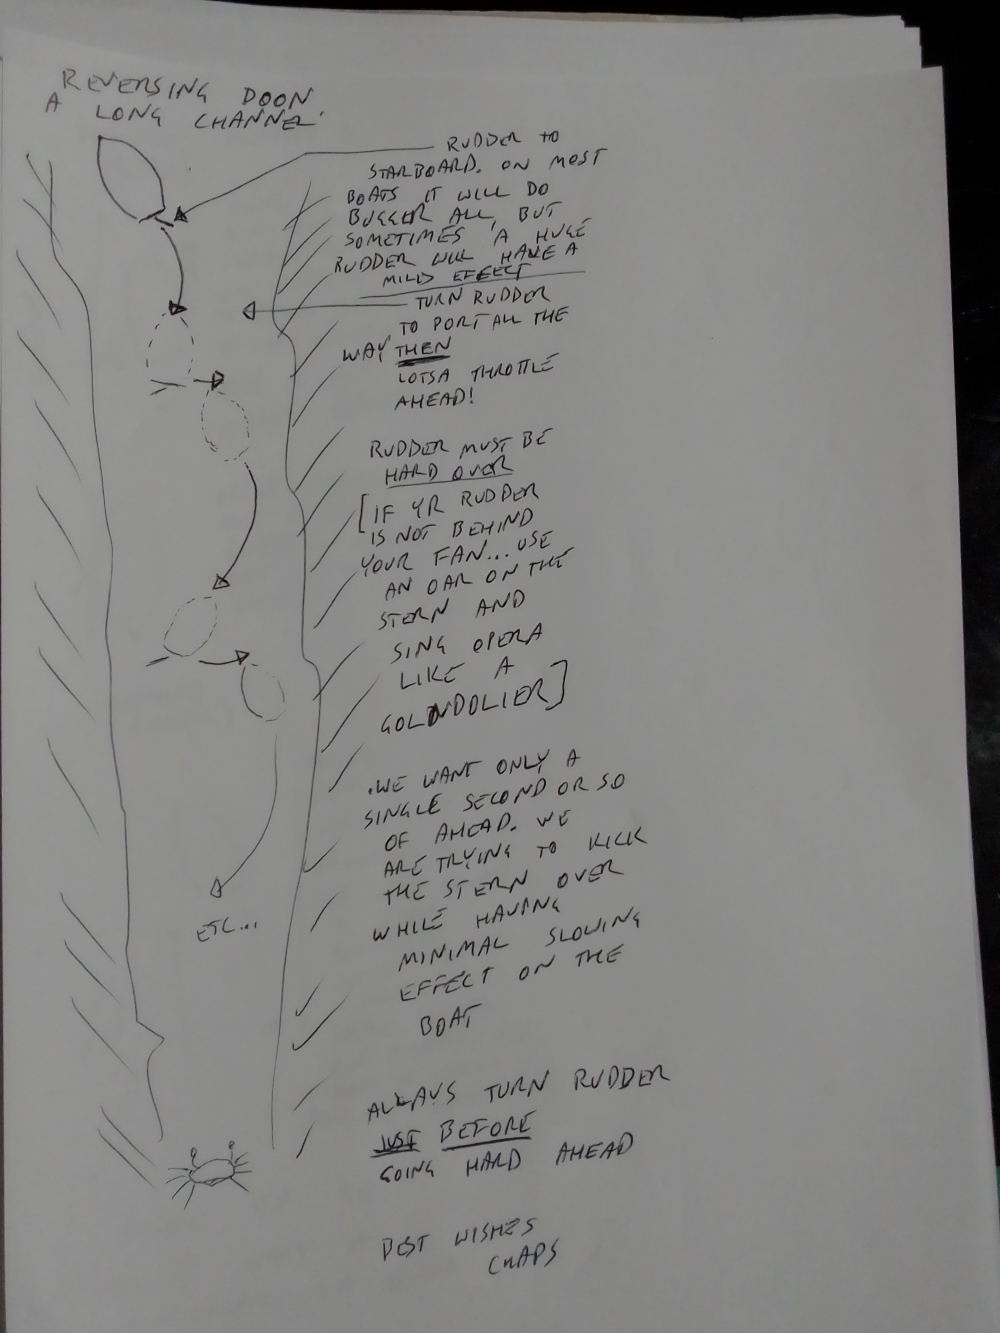 REVERSING DOON
A LONG CHANNEL.
RUDDER TO
STARBOARD. ON MOST
BOATS IT WILL DO
BUGGER ALL, BUT
SOMETIMES A HUGE
RUDDER WILL HAVE A
MILD EFFECT
TURN RUDDER
TO PORT ALL THE
WAY THEN
LOTSA THROTTLE
AHEAD!
RUDDER MUST BE
HARD OVER
[IF YR RUDDER
IS NOT BEHIND
YOUR FAN... USE
AN OAR ON THE
STERN AND
SING OPERA
LIKE A
GOLONDOLIER]
.WE WANT ONLY A
SINGLE SECOND OR SO
OF AHEAD. WE
ARE TRYING TO KICK
THE STERN OVER
WHILE HAVING
MINIMAL SLOWING
EFFECT ON THE
BOAT
ETC...
ALWAYS TURN RUDDER
JUST BEFORE
GOING HARD AHEAD
BEST WISHES
CHAPS